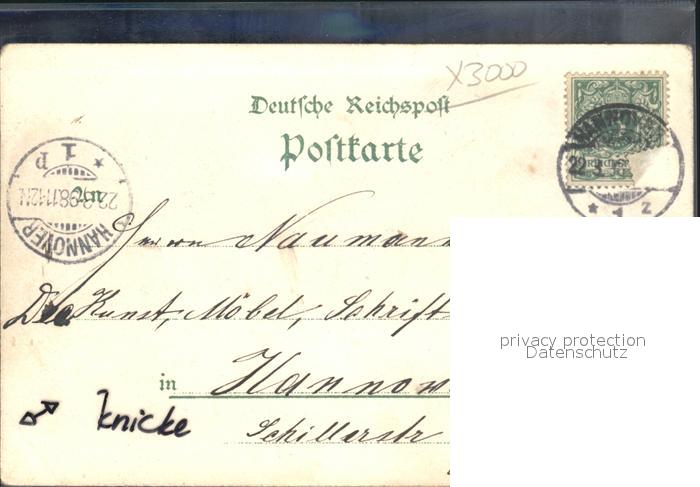 X3000
Deutsche Reichspost
Postkarte
HANNOVER
22 3
* 1 z
1 P
22.3.98.11-12N
HANNOVER
An
Herrn Nauman
Kunst, Möbel, Schrift
in Hannov
Schillerstr
knicke
privacy protection
Datenschutz